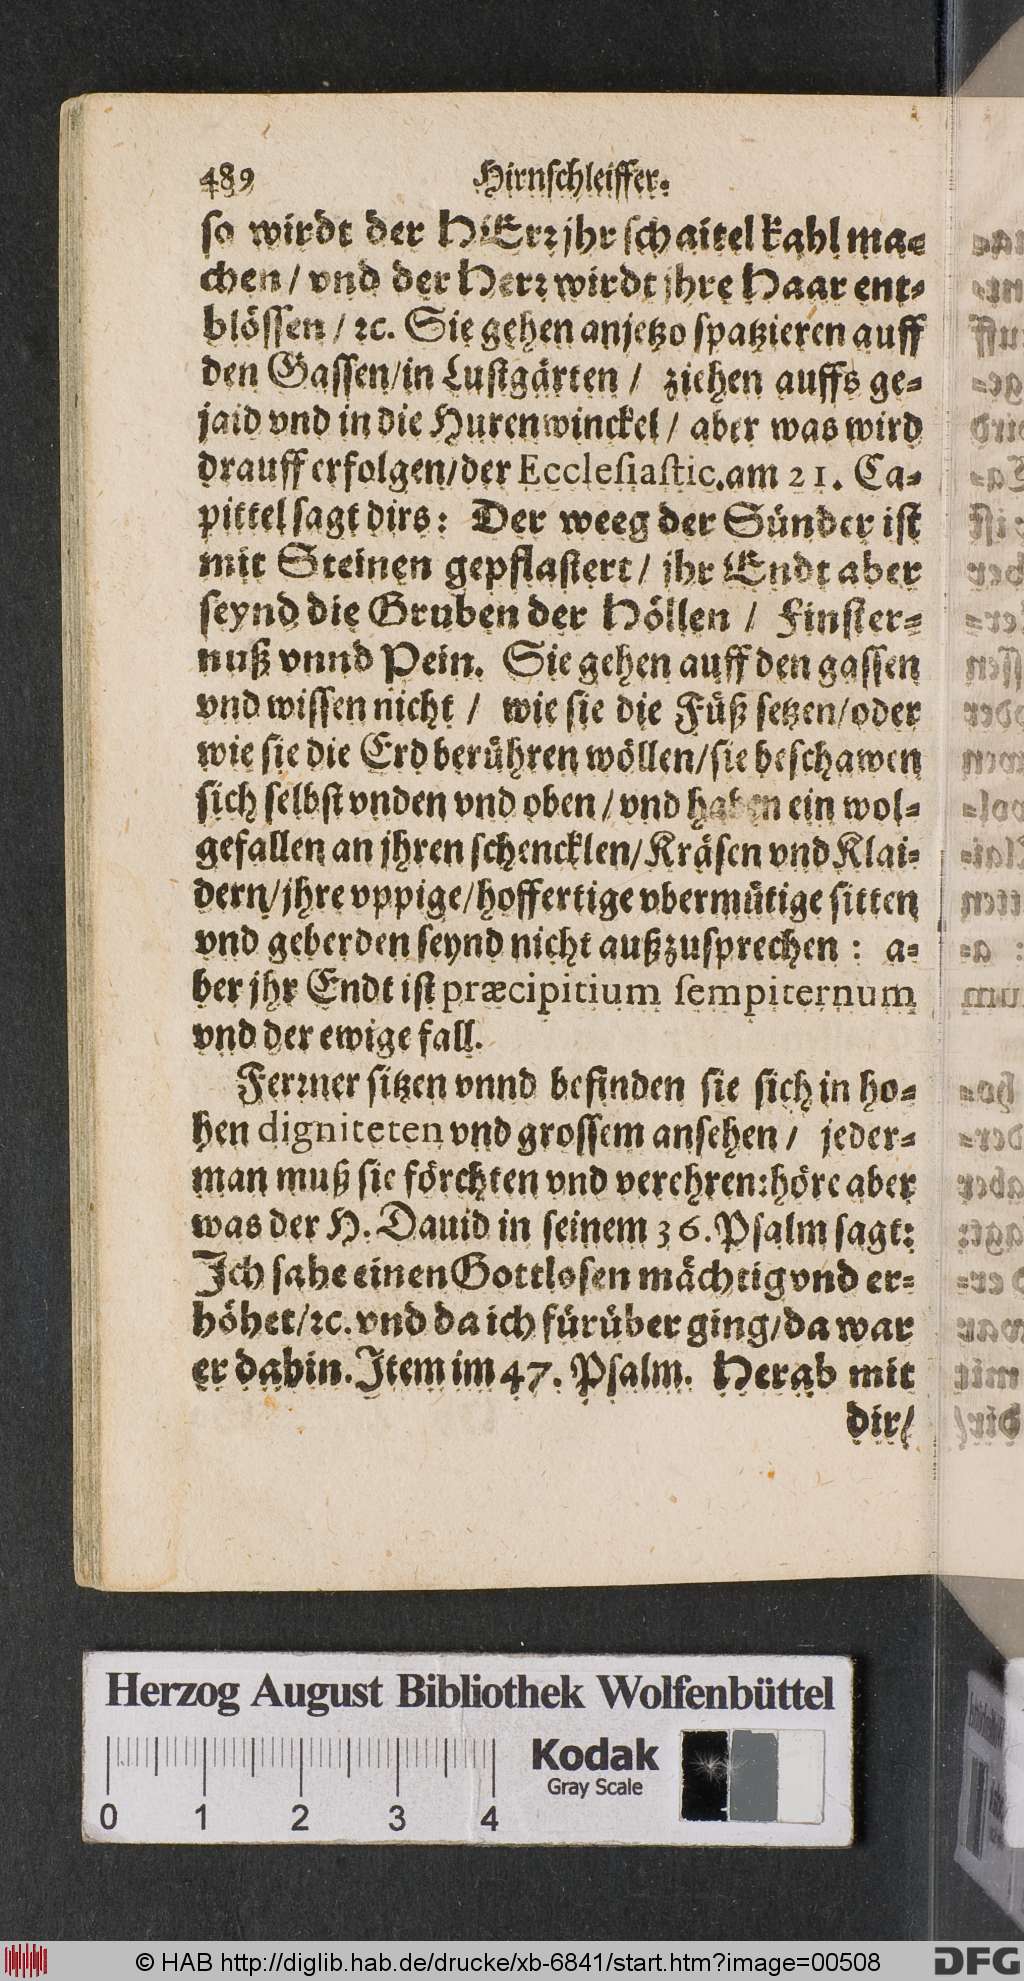 489 Hirnschleiffer.
so wirdt der HErꝛ jhr schaitel kahl ma-
chen / vnd der Herꝛ wirdt jhre Haar ent-
blössen / ꝛc. Sie gehen anjetzo spatzieren auff
den Gassen/in Lustgärten / ziehen auffs ge-
jaid vnd in die Hurenwinckel / aber was wird
drauff erfolgen/der Ecclesiastic.am 21. Ca-
pittel sagt dirs: Der weeg der Sünder ist
mit Steinen gepflastert / jhr Endt aber
seynd die Gruben der Höllen / Finster-
nuß vnnd Pein. Sie gehen auff den gassen
vnd wissen nicht / wie sie die Füß setzen/oder
wie sie die Erd berühren wöllen/sie beschawen
sich selbst vnden vnd oben / vnd haben ein wol-
gefallen an jhren schencklen/Kräsen vnd Klai-
dern/jhre vppige/hoffertige vbermütige sitten
vnd geberden seynd nicht außzusprechen : a-
ber jhr Endt ist præcipitium sempiternum
vnd der ewige fall.
Ferꝛner sitzen vnnd befinden sie sich in ho-
hen digniteten vnd grossem ansehen / jeder-
man muß sie förchten vnd verehren:höre aber
was der H. Dauid in seinem 36. Psalm sagt:
Ich sahe einen Gottlosen mächtig vnd er-
höhet/ꝛc. vnd da ich fürüber ging/da war
er dahin. Item im 47. Psalm. Herab mit
dir/
Herzog August Bibliothek Wolfenbüttel
Kodak
Gray Scale
0 1 2 3 4
© HAB http://diglib.hab.de/drucke/xb-6841/start.htm?image=00508
DFG